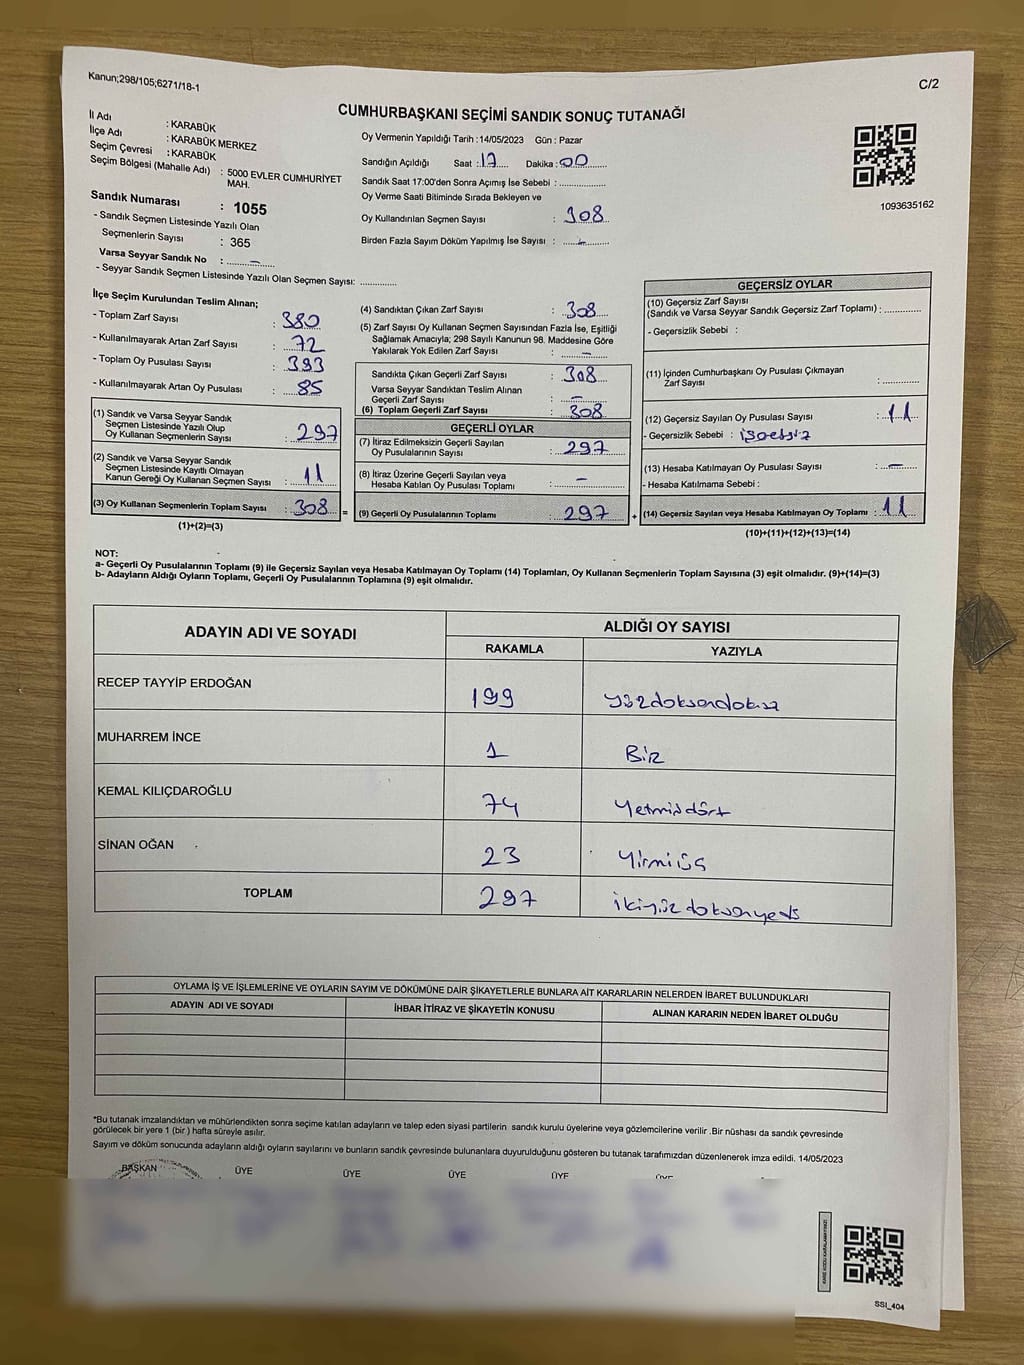 Kanun;298/105;6271/18-1
C/2
CUMHURBAŞKANI SEÇİMİ SANDIK SONUÇ TUTANAĞI
İl Adı : KARABÜK
İlçe Adı : KARABÜK MERKEZ
Seçim Çevresi : KARABÜK
Seçim Bölgesi (Mahalle Adı) : 5000 EVLER CUMHURİYET
MAH.
Sandık Numarası : 1055
- Sandık Seçmen Listesinde Yazılı Olan
Seçmenlerin Sayısı : 365
Varsa Seyyar Sandık No : –
- Seyyar Sandık Seçmen Listesinde Yazılı Olan Seçmen Sayısı: ............
Oy Vermenin Yapıldığı Tarih : 14/05/2023 Gün : Pazar
Sandığın Açıldığı Saat : 17 Dakika : 00
Sandık Saat 17:00'den Sonra Açımış İse Sebebi : ...............
Oy Verme Saati Bitiminde Sırada Bekleyen ve
Oy Kullandırılan Seçmen Sayısı : 308
Birden Fazla Sayım Döküm Yapılmış İse Sayısı : –
1093635162
İlçe Seçim Kurulundan Teslim Alınan;
- Toplam Zarf Sayısı : 380
- Kullanılmayarak Artan Zarf Sayısı : 72
- Toplam Oy Pusulası Sayısı : 393
- Kullanılmayarak Artan Oy Pusulası : 85
(1) Sandık ve Varsa Seyyar Sandık
Seçmen Listesinde Yazılı Olup
Oy Kullanan Seçmenlerin Sayısı : 297
(2) Sandık ve Varsa Seyyar Sandık
Seçmen Listesinde Kayıtlı Olmayan
Kanun Gereği Oy Kullanan Seçmen Sayısı : 11
(3) Oy Kullanan Seçmenlerin Toplam Sayısı : 308 =
(1)+(2)=(3)
(4) Sandıktan Çıkan Zarf Sayısı : 308
(5) Zarf Sayısı Oy Kullanan Seçmen Sayısından Fazla İse, Eşitliği
Sağlamak Amacıyla; 298 Sayılı Kanunun 98. Maddesine Göre
Yakılarak Yok Edilen Zarf Sayısı : –
Sandıkta Çıkan Geçerli Zarf Sayısı : 308
Varsa Seyyar Sandıktan Teslim Alınan
Geçerli Zarf Sayısı : –
(6) Toplam Geçerli Zarf Sayısı : 308
GEÇERLİ OYLAR
(7) İtiraz Edilmeksizin Geçerli Sayılan
Oy Pusulalarının Sayısı : 297
(8) İtiraz Üzerine Geçerli Sayılan veya
Hesaba Katılan Oy Pusulası Toplamı : –
(9) Geçerli Oy Pusulalarının Toplamı : 297 +
GEÇERSİZ OYLAR
(10) Geçersiz Zarf Sayısı
(Sandık ve Varsa Seyyar Sandık Geçersiz Zarf Toplamı) : ............
- Geçersizlik Sebebi :
(11) İçinden Cumhurbaşkanı Oy Pusulası Çıkmayan
Zarf Sayısı : ............
(12) Geçersiz Sayılan Oy Pusulası Sayısı : 11
- Geçersizlik Sebebi :
(13) Hesaba Katılmayan Oy Pusulası Sayısı : –
- Hesaba Katılmama Sebebi :
(14) Geçersiz Sayılan veya Hesaba Katılmayan Oy Toplamı : 11
(10)+(11)+(12)+(13)=(14)
NOT:
a- Geçerli Oy Pusulalarının Toplamı (9) ile Geçersiz Sayılan veya Hesaba Katılmayan Oy Toplamı (14) Toplamları, Oy Kullanan Seçmenlerin Toplam Sayısına (3) eşit olmalıdır. (9)+(14)=(3)
b- Adayların Aldığı Oyların Toplamı, Geçerli Oy Pusulalarının Toplamına (9) eşit olmalıdır.
ADAYIN ADI VE SOYADI
ALDIĞI OY SAYISI
RAKAMLA YAZIYLA
RECEP TAYYİP ERDOĞAN 199 yüzdoksandokuz
MUHARREM İNCE 1 Bir
KEMAL KILIÇDAROĞLU 74 Yetmişdört
SİNAN OĞAN 23 Yirmiüç
TOPLAM 297 ikiyüzdoksanyedi
OYLAMA İŞ VE İŞLEMLERİNE VE OYLARIN SAYIM VE DÖKÜMÜNE DAİR ŞİKAYETLERLE BUNLARA AİT KARARLARIN NELERDEN İBARET BULUNDUKLARI
ADAYIN ADI VE SOYADI İHBAR İTİRAZ VE ŞİKAYETİN KONUSU ALINAN KARARIN NEDEN İBARET OLDUĞU
*Bu tutanak imzalandıktan ve mühürlendikten sonra seçime katılan adayların ve talep eden siyasi partilerin sandık kurulu üyelerine veya gözlemcilerine verilir .Bir nüshası da sandık çevresinde
görülecek bir yere 1 (bir ) hafta süreyle asılır.
Sayım ve döküm sonucunda adayların aldığı oyların sayılarını ve bunların sandık çevresinde bulunanlara duyurulduğunu gösteren bu tutanak tarafımızdan düzenlenerek imza edildi. 14/05/2023
BAŞKAN ÜYE ÜYE ÜYE ÜYE ÜYE
SSI_404